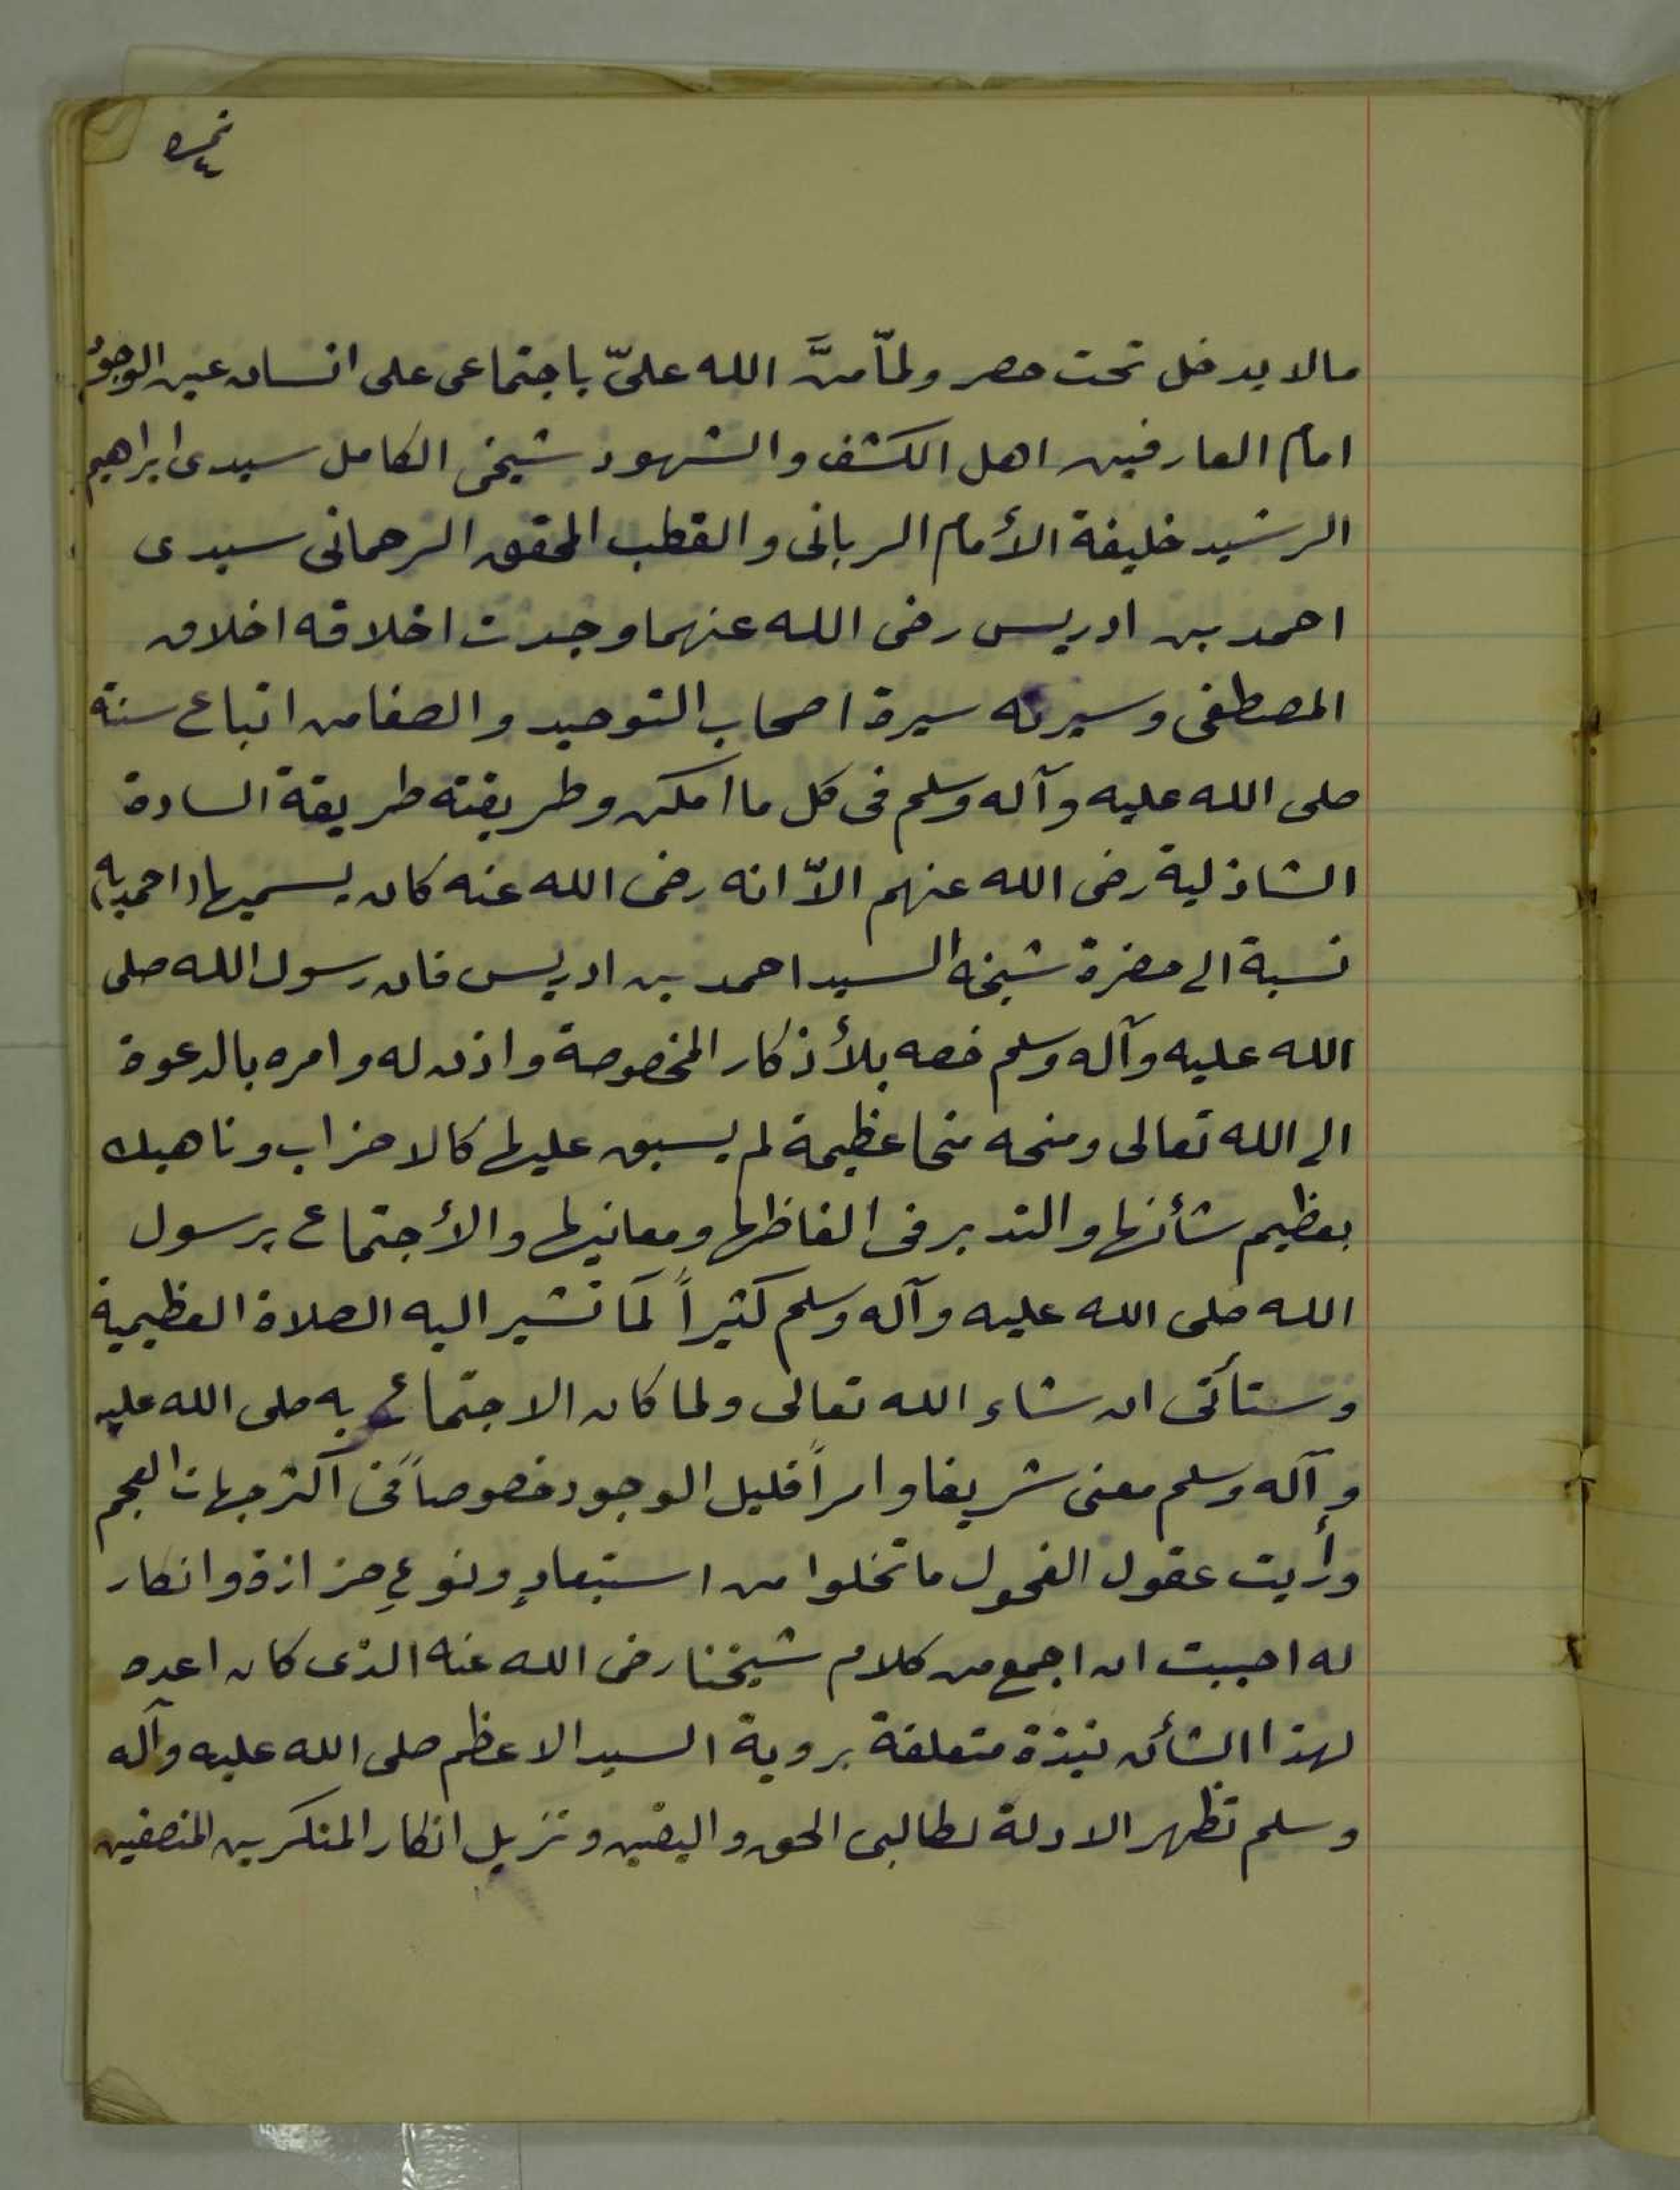 نمرة ٤
مالا يدخل تحت حصر ولمّا منَّ الله علىّ باجتماعى على انسان عين الوجود
امام العارفين اهل الكشف والشهود شيخى الكامل سيدى ابراهيم
الرشيد خليفة الأمام الربانى والقطب المحقق الرحمانى سيدى
احمد بن ادريس رضى الله عنهما وجدت اخلاقه اخلاق
المصطفى وسيرته سيرة اصحاب التوحيد والصفا من اتباع سنة
صلى الله عليه وآله وسلم فى كل ما امكن وطريقته طريقة السادة
الشاذلية رضى الله عنهم الاّ انه رضى الله عنه كان يسميها (احمدية)
نسبة الى حضرة شيخه السيد احمد بن ادريس فان رسول الله صلى
الله عليه وآله وسلم خصه بلأذكار المخصوصة واذن له وامره بالدعوة
الى الله تعالى ومنحه منحا عظيمة لم يسبق عليها كالاحزاب وناهيك
بعظيم شأنها والتدبر فى الفاظها ومعانيها والأجتماع برسول
الله صلى الله عليه وآله وسلم كثيراً كما تشير اليه الصلاة العظيمية
وستأتى ان شاء الله تعالى ولما كان الاجتماع به صلى الله عليه
وآله وسلم معنى شريفا وامراً قليل الوجود خصوصاً فى اكثر جهات العجم
ورأيت عقول الفحول ما تخلوا من استبعادٍ ونوعِ حزازة وانكار
له احببت ان اجمع من كلام شيخنا رضى الله عنه الذى كان اعده
لهذا الشأن نبذة متعلقة بروية السيد الاعظم صلى الله عليه وآله
وسلم تظهر الادلة لطالبى الحق واليقين وتزيل انكار المنكرين المنصفين